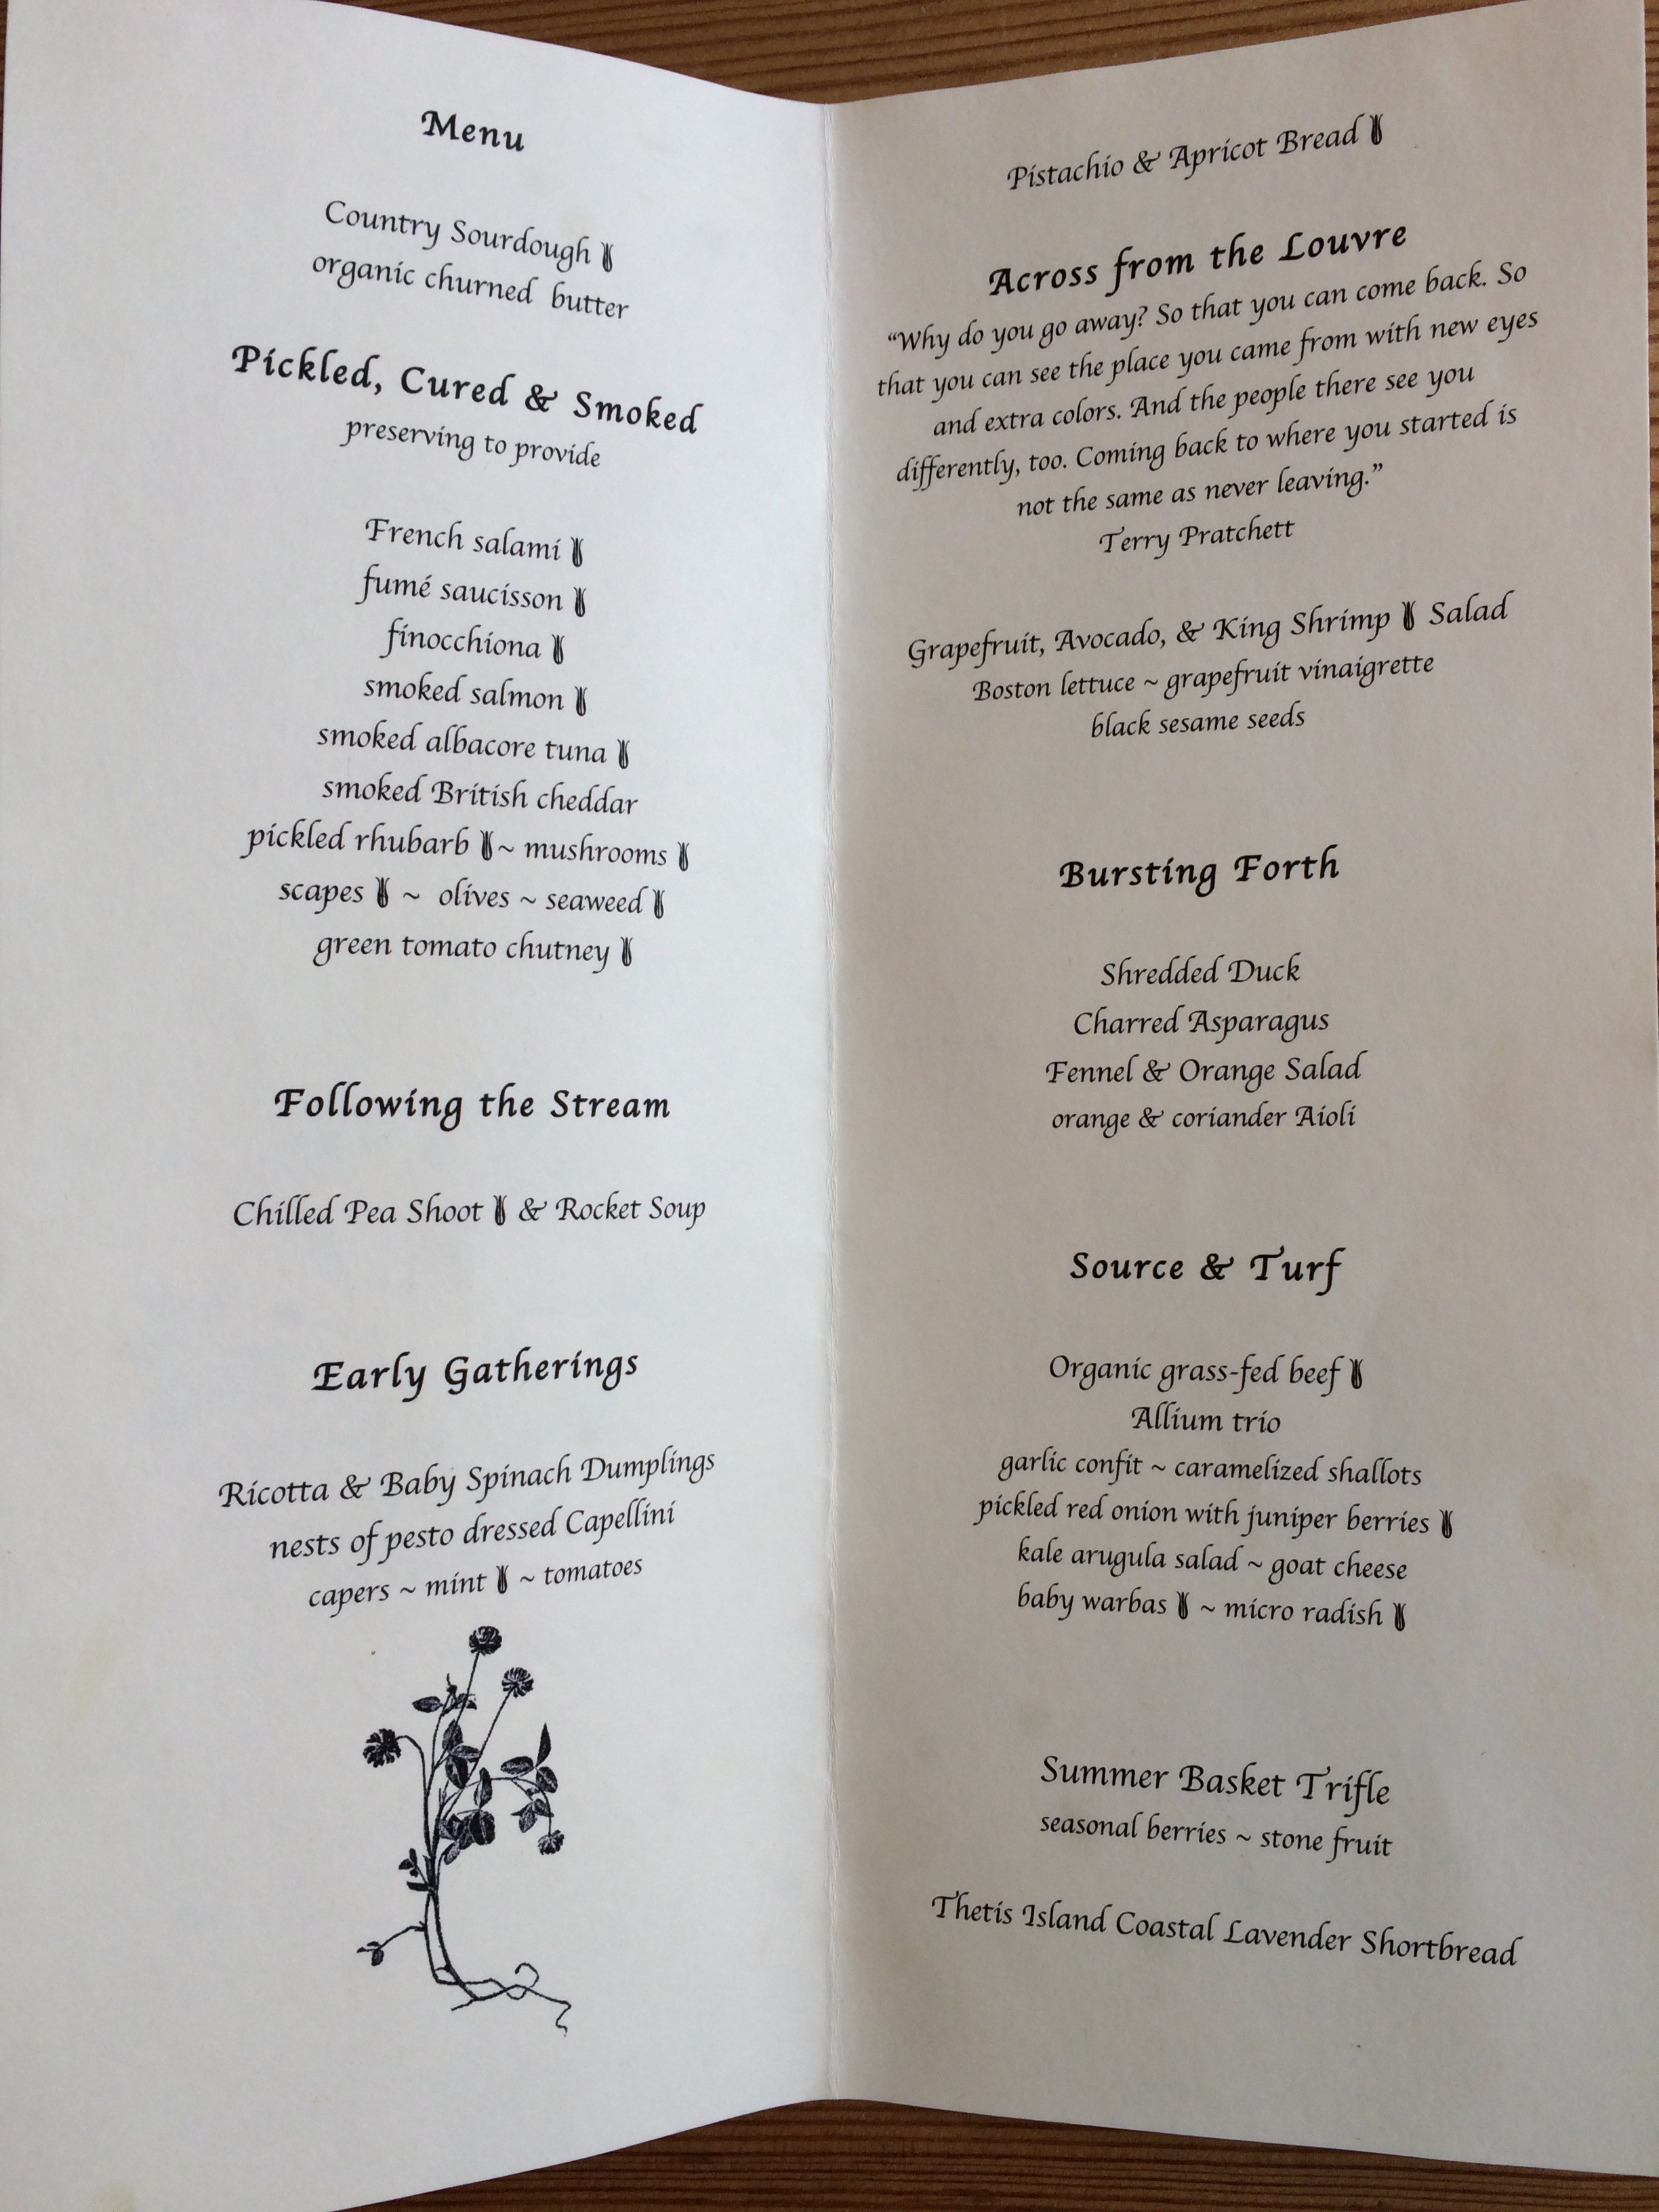 Menu
Country Sourdough
organic churned butter
Pickled, Cured & Smoked
preserving to provide
French salami
fumé saucisson
finocchiona
smoked salmon
smoked albacore tuna
smoked British cheddar
pickled rhubarb ~ mushrooms
scapes ~ olives ~ seaweed
green tomato chutney
Following the Stream
Chilled Pea Shoot & Rocket Soup
Early Gatherings
Ricotta & Baby Spinach Dumplings
nests of pesto dressed Capellini
capers ~ mint ~ tomatoes
Pistachio & Apricot Bread
Across from the Louvre
“Why do you go away? So that you can come back. So
that you can see the place you came from with new eyes
and extra colors. And the people there see you
differently, too. Coming back to where you started is
not the same as never leaving.”
Terry Pratchett
Grapefruit, Avocado, & King Shrimp Salad
Boston lettuce ~ grapefruit vinaigrette
black sesame seeds
Bursting Forth
Shredded Duck
Charred Asparagus
Fennel & Orange Salad
orange & coriander Aioli
Source & Turf
Organic grass-fed beef
Allium trio
garlic confit ~ caramelized shallots
pickled red onion with juniper berries
kale arugula salad ~ goat cheese
baby warbas ~ micro radish
Summer Basket Trifle
seasonal berries ~ stone fruit
Thetis Island Coastal Lavender Shortbread